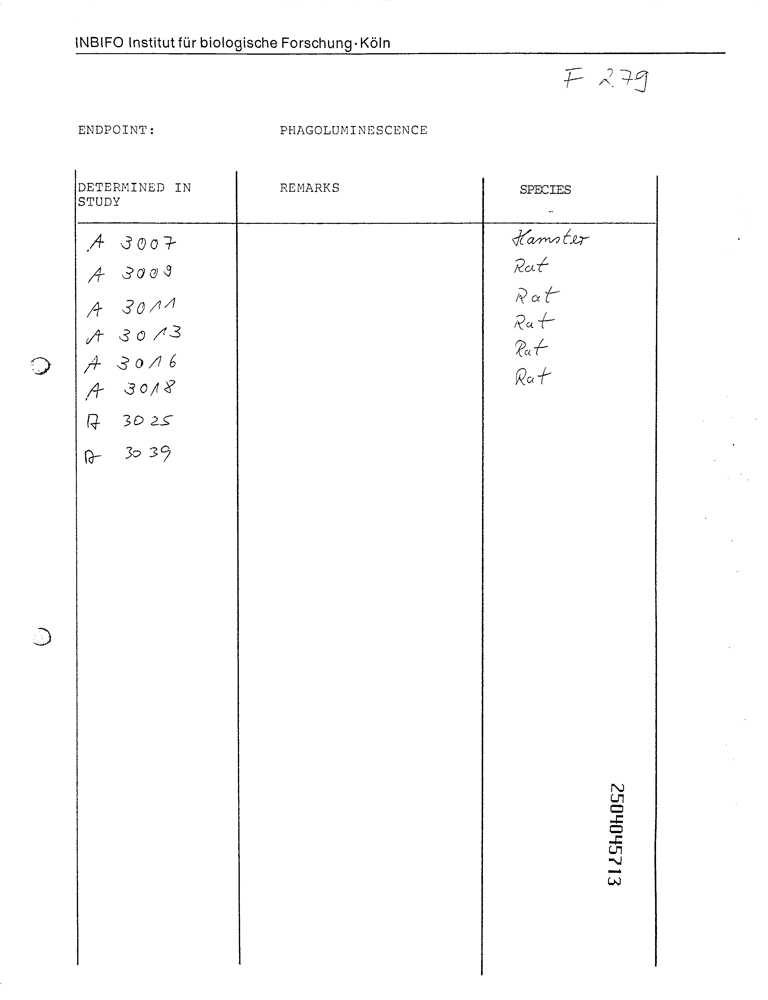 INBIFO Institut für biologische Forschung·Köln
F 279
ENDPOINT: PHAGOLUMINESCENCE
DETERMINED IN REMARKS SPECIES
STUDY
A 3007 Hamster
A 3009 Rat
A 3011 Rat
A 3013 Rat
A 3016 Rat
A 3018 Rat
A 3025
A 3039
2504045713